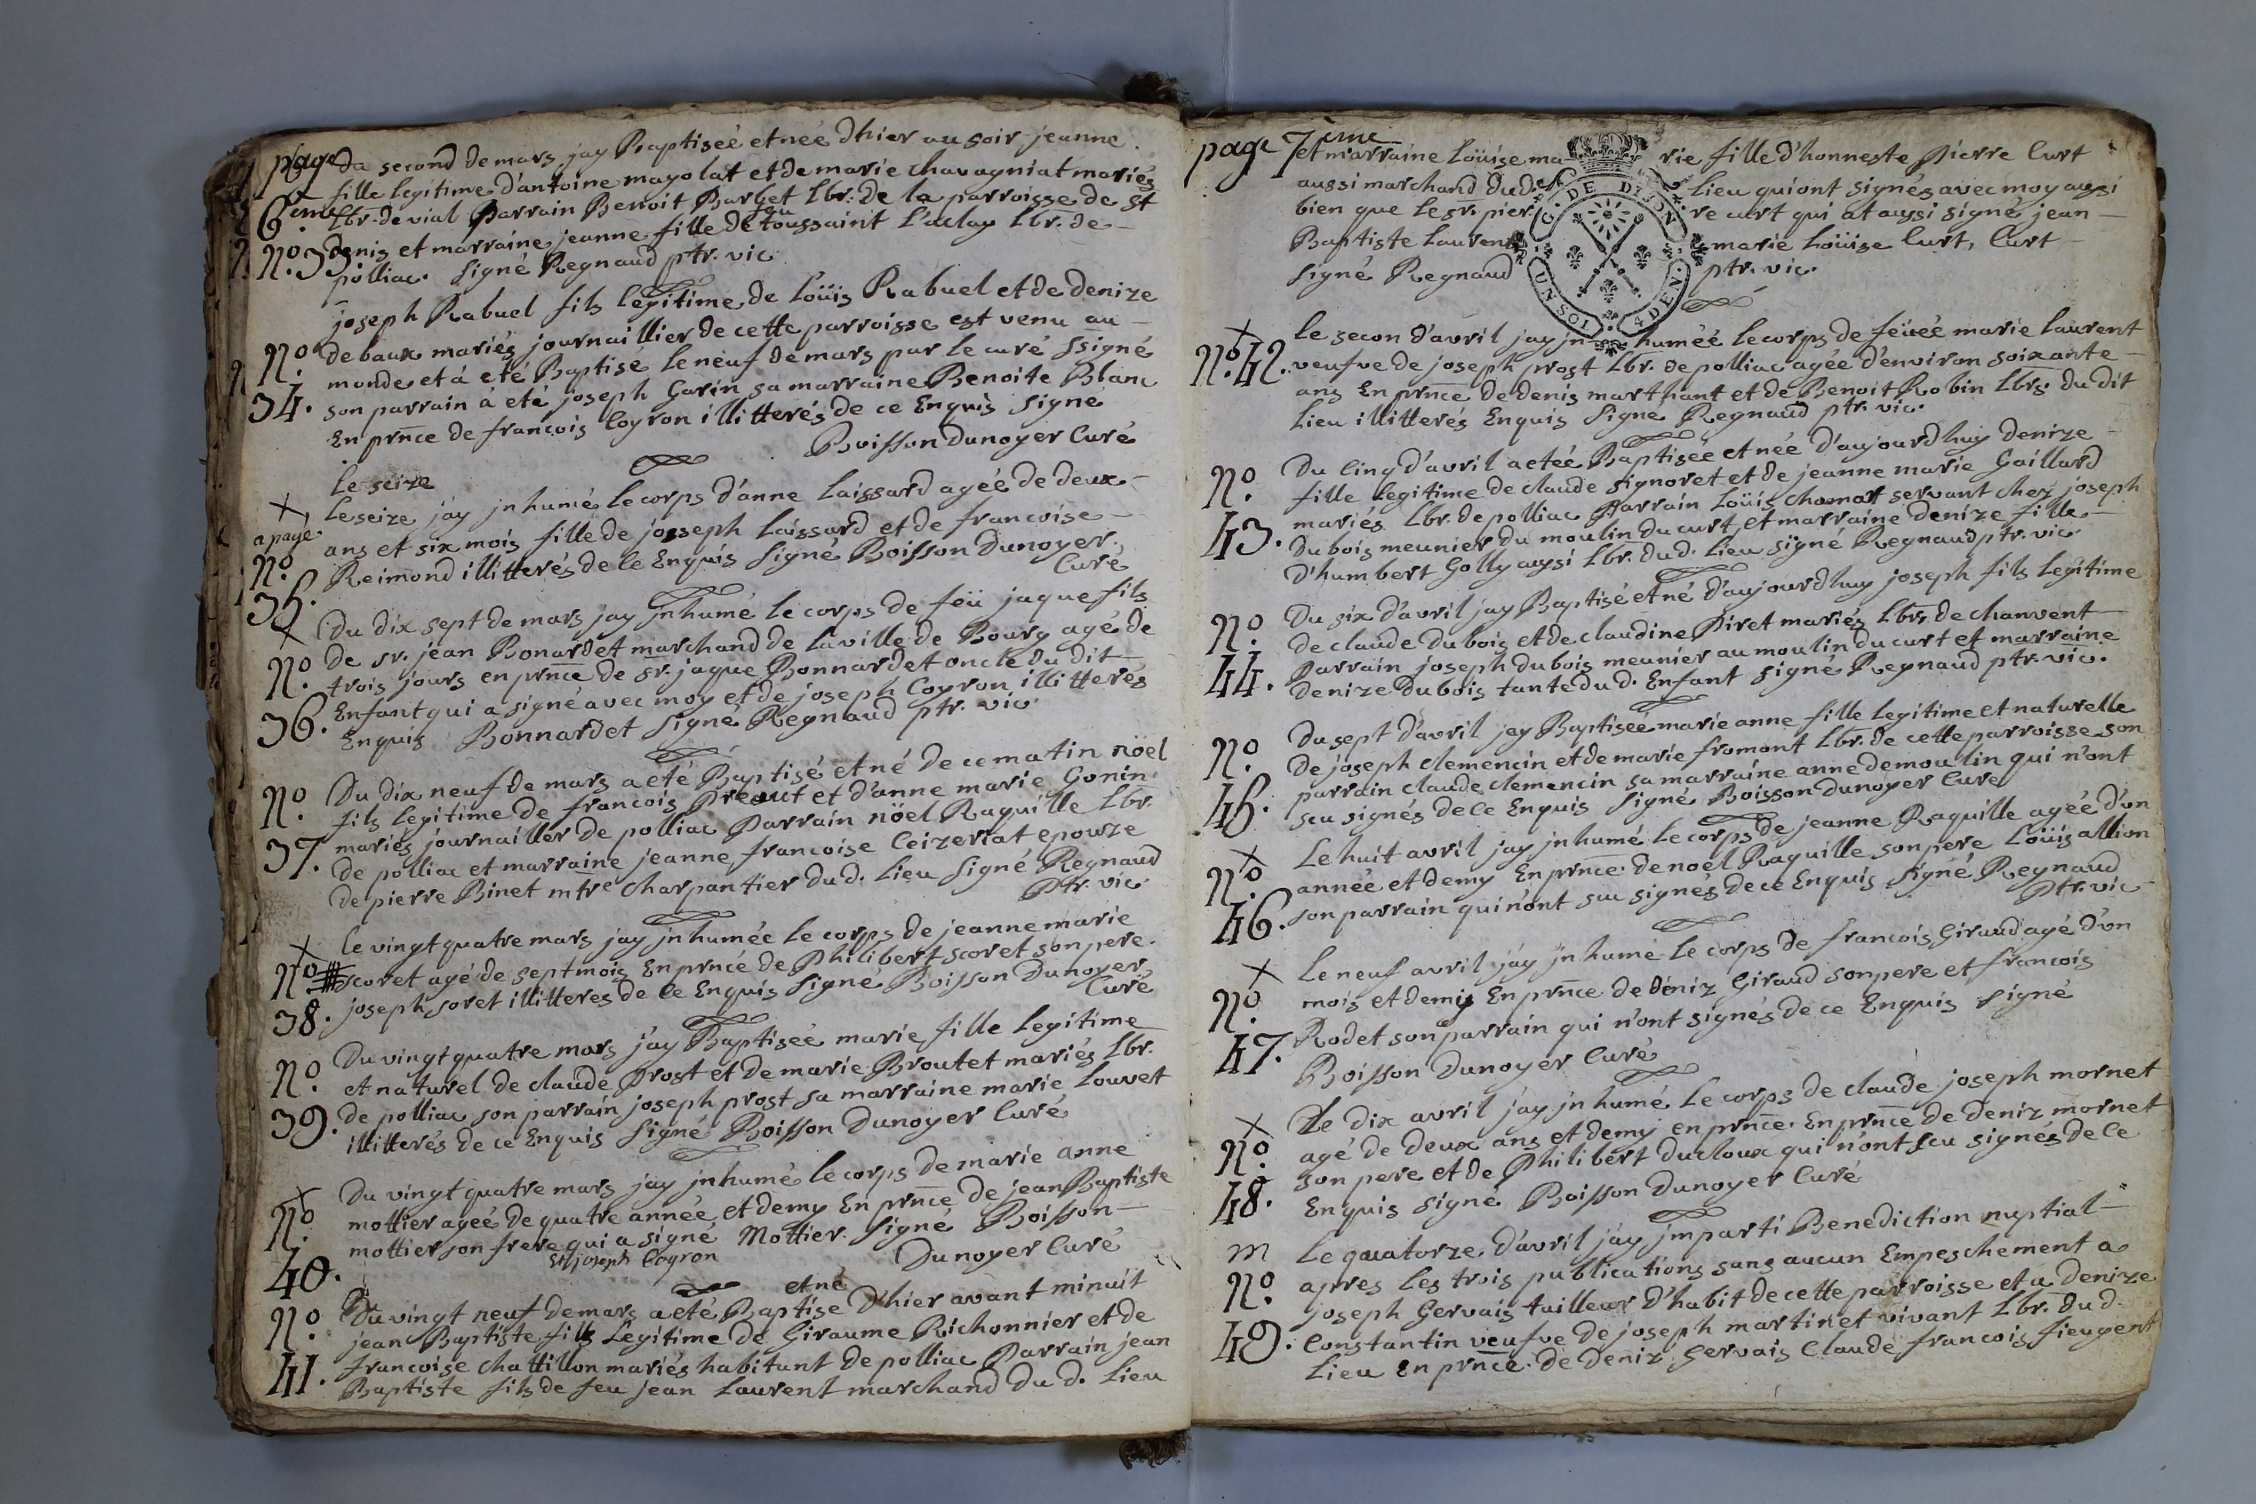 page 6eme
Du second de mars jay Baptiseé et née dhier au soir jeanne
fille legitime d'antoine mayolat et de marie chavagniat mariés
Lbr. de vial Parrain Benoit Barbet Lbr. de la parroisse de St
denis et marraine jeanne fille de feu toussaint Laclay Lbr. de
No. 33.
polliac. Signé Regnaud ptr. vic
joseph Rabuel fils legitime de Loüis Rabuel et de denize
debaux mariés journaillier de cette parroisse est venu au
No. 34.
monde et á eté Baptise le neuf de mars par le curé Ssigné
son parrain á eté joseph Garin sa marraine Benoite Blanc
En prnce de francois Coyron illitterés de ce Enquis Signe
Boisson Dunoyer Curé
Le seize
Le seize jáy jnhumé le corps d'anne Laissard agéé de deux
a payé
No. 35.
ans et six mois fille de joseph Laissard et de francoise
Reimond illitterés de ce Enquis Signé Boisson Dunoyer
Curé
Du dix sept de mars jay jnhumé le corps de feü jaque fils
de sr. jean Bonardet marchand de la ville de Bourg agé de
No. 36.
trois jours en prnce de sr. jaque Bonnardet oncle du dit
Enfant qui a signé avec moy et de joseph Coyron illitterés
Enquis Bonnardet Signé Regnaud ptr. vic
Du dix neuf de mars a eté Baptisé et né de ce matin nöel
No. 37.
fils legitime de francois Preaut et d'anne marie Gonin
mariés journaillier de polliac Parrain nöel Raquille Lbr.
de polliac et marraine jeanne francoise Ceizeriat epouze
de pierre Binet mtre charpantier du d. lieu Signé Regnaud
ptr. vic
Le vingt quatre mars jay jnhumée le corps de jeanne marie
No. 38.
scoret agé de sept mois En prncé de Philibert scoret son pere
joseph soret illitteres de ce Enquis Signé Boisson Dunoyer
Curé
Du vingt quatre mars j'ay Baptisée marie fille Legitime
No. 39.
et naturel de claude prost et de marie Broutet mariés Lbr.
de polliac son parrain joseph prost sa marraine marie Louvet
illitterés de ce Enquis Signé Boisson Dunoyer Curé
Du vingt quatre mars jay jnhumé le corps de marie anne
No. 40.
mottier ageé de quatre année et demy En prnce de jean Baptiste
mottier son frere qui a signé Mottier. Signé Boisson
Et joseph Coyron
Dunoyer Curé
Du vingt neuf de mars a eté Baptise et né D'hier avant minuit
No. 41.
jean Baptiste fils Legitime de Giraume Richonnier et de
francoise chattillon mariés habitant de polliac Parrain jean
Baptiste fils de feu jean Laurent marchand du d. lieu
page 7eme
et marraine Loüise marie fille d'honneste Pierre Curt
aussi marchand du d. lieu qui ont signés avec moy aussi
bien que le sr. pierre curt qui at aussi signé jean
Baptiste Laurent marie Loüise Curt, Curt
Signé Regnaud ptr. vic.
G. DE DIJON
UN SOL 4 DEN.
No. 42.
le secon d'avril jay jnhuméé le corps de feüéé marie laurent
veufve de joseph prost Lbr. de polliac agée d'environ soixante
ans En prnce de denis marthant et de Benoit Robin Lbrs. du dit
Lieu illitterés Enquis Signe Regnaud ptr. vic.
Du cinq d'avril a etée Baptisée et née d'aujourdhuy Denize
No. 43.
fille legitime de claude Signoret et de jeanne marie Gaillard
mariés Lbr. de polliac Parrain Loüis chamar servant chez joseph
Dubois meunier du moulin du curt et marraine denize fille
D'humbert Golly aussi Lbr. du d. lieu signé Regnaud ptr. vic
Du six d'avril jay Baptisé et né d'aujourdhuy joseph fils legitime
No. 44.
de claude Dubois et de claudine Piret mariés Lbr. de chanvent
Parrain joseph dubois meunier au moulin du curt et marraine
denize Dubois tante du d. Enfant signé Regnaud ptr. vic.
Du sept d'avril jay Baptisée marie anne fille legitime et naturelle
No. 45.
de joseph clemencin et de marie fromont Lbr. de cette parroisse son
parrain claude clemencin sa marraine anne demoulin qui n'ont
scu signés de ce Enquis signé Boisson Dunoyer Cure
Le huit avril jay jnhumé le corps de jeanne Raquille agée d'un
No. 46.
année et demy En prnce de noel Raquille son pere Loüis allion
son parrain qui n'ont scu signés de ce Enquis signé Regnaud
ptr. vic
Le neuf avril jáy jnhumé le corps de francois Giraud agé d'un
No. 47.
mois et demis En prnce de déniz Giraud son pere et francois
Rodet son parrain qui n'ont signés de ce Enquis Signé
Boisson Dunoyer Curé
Le dix avril jáy jnhumé le corps de claude joseph mornet
No. 48.
agé de deux ans et demy en prnce. En prnce de deniz mornet
son pere et de Philibert ducloux qui n'ont scu signés de ce
Enquis Signé Boisson Dunoyer Curé
m
No. 49.
Le quatorze d'avril jáy jmparti Benediction nuptial
apres les trois publications sans aucun Empeschement a
joseph Gervais tailleur d'habit de cette parroisse et a denize
Constantin veufve de joseph martinet vivant Lbr. du d.
Lieu En prnce. de deniz Gervais Claude francois fieugent